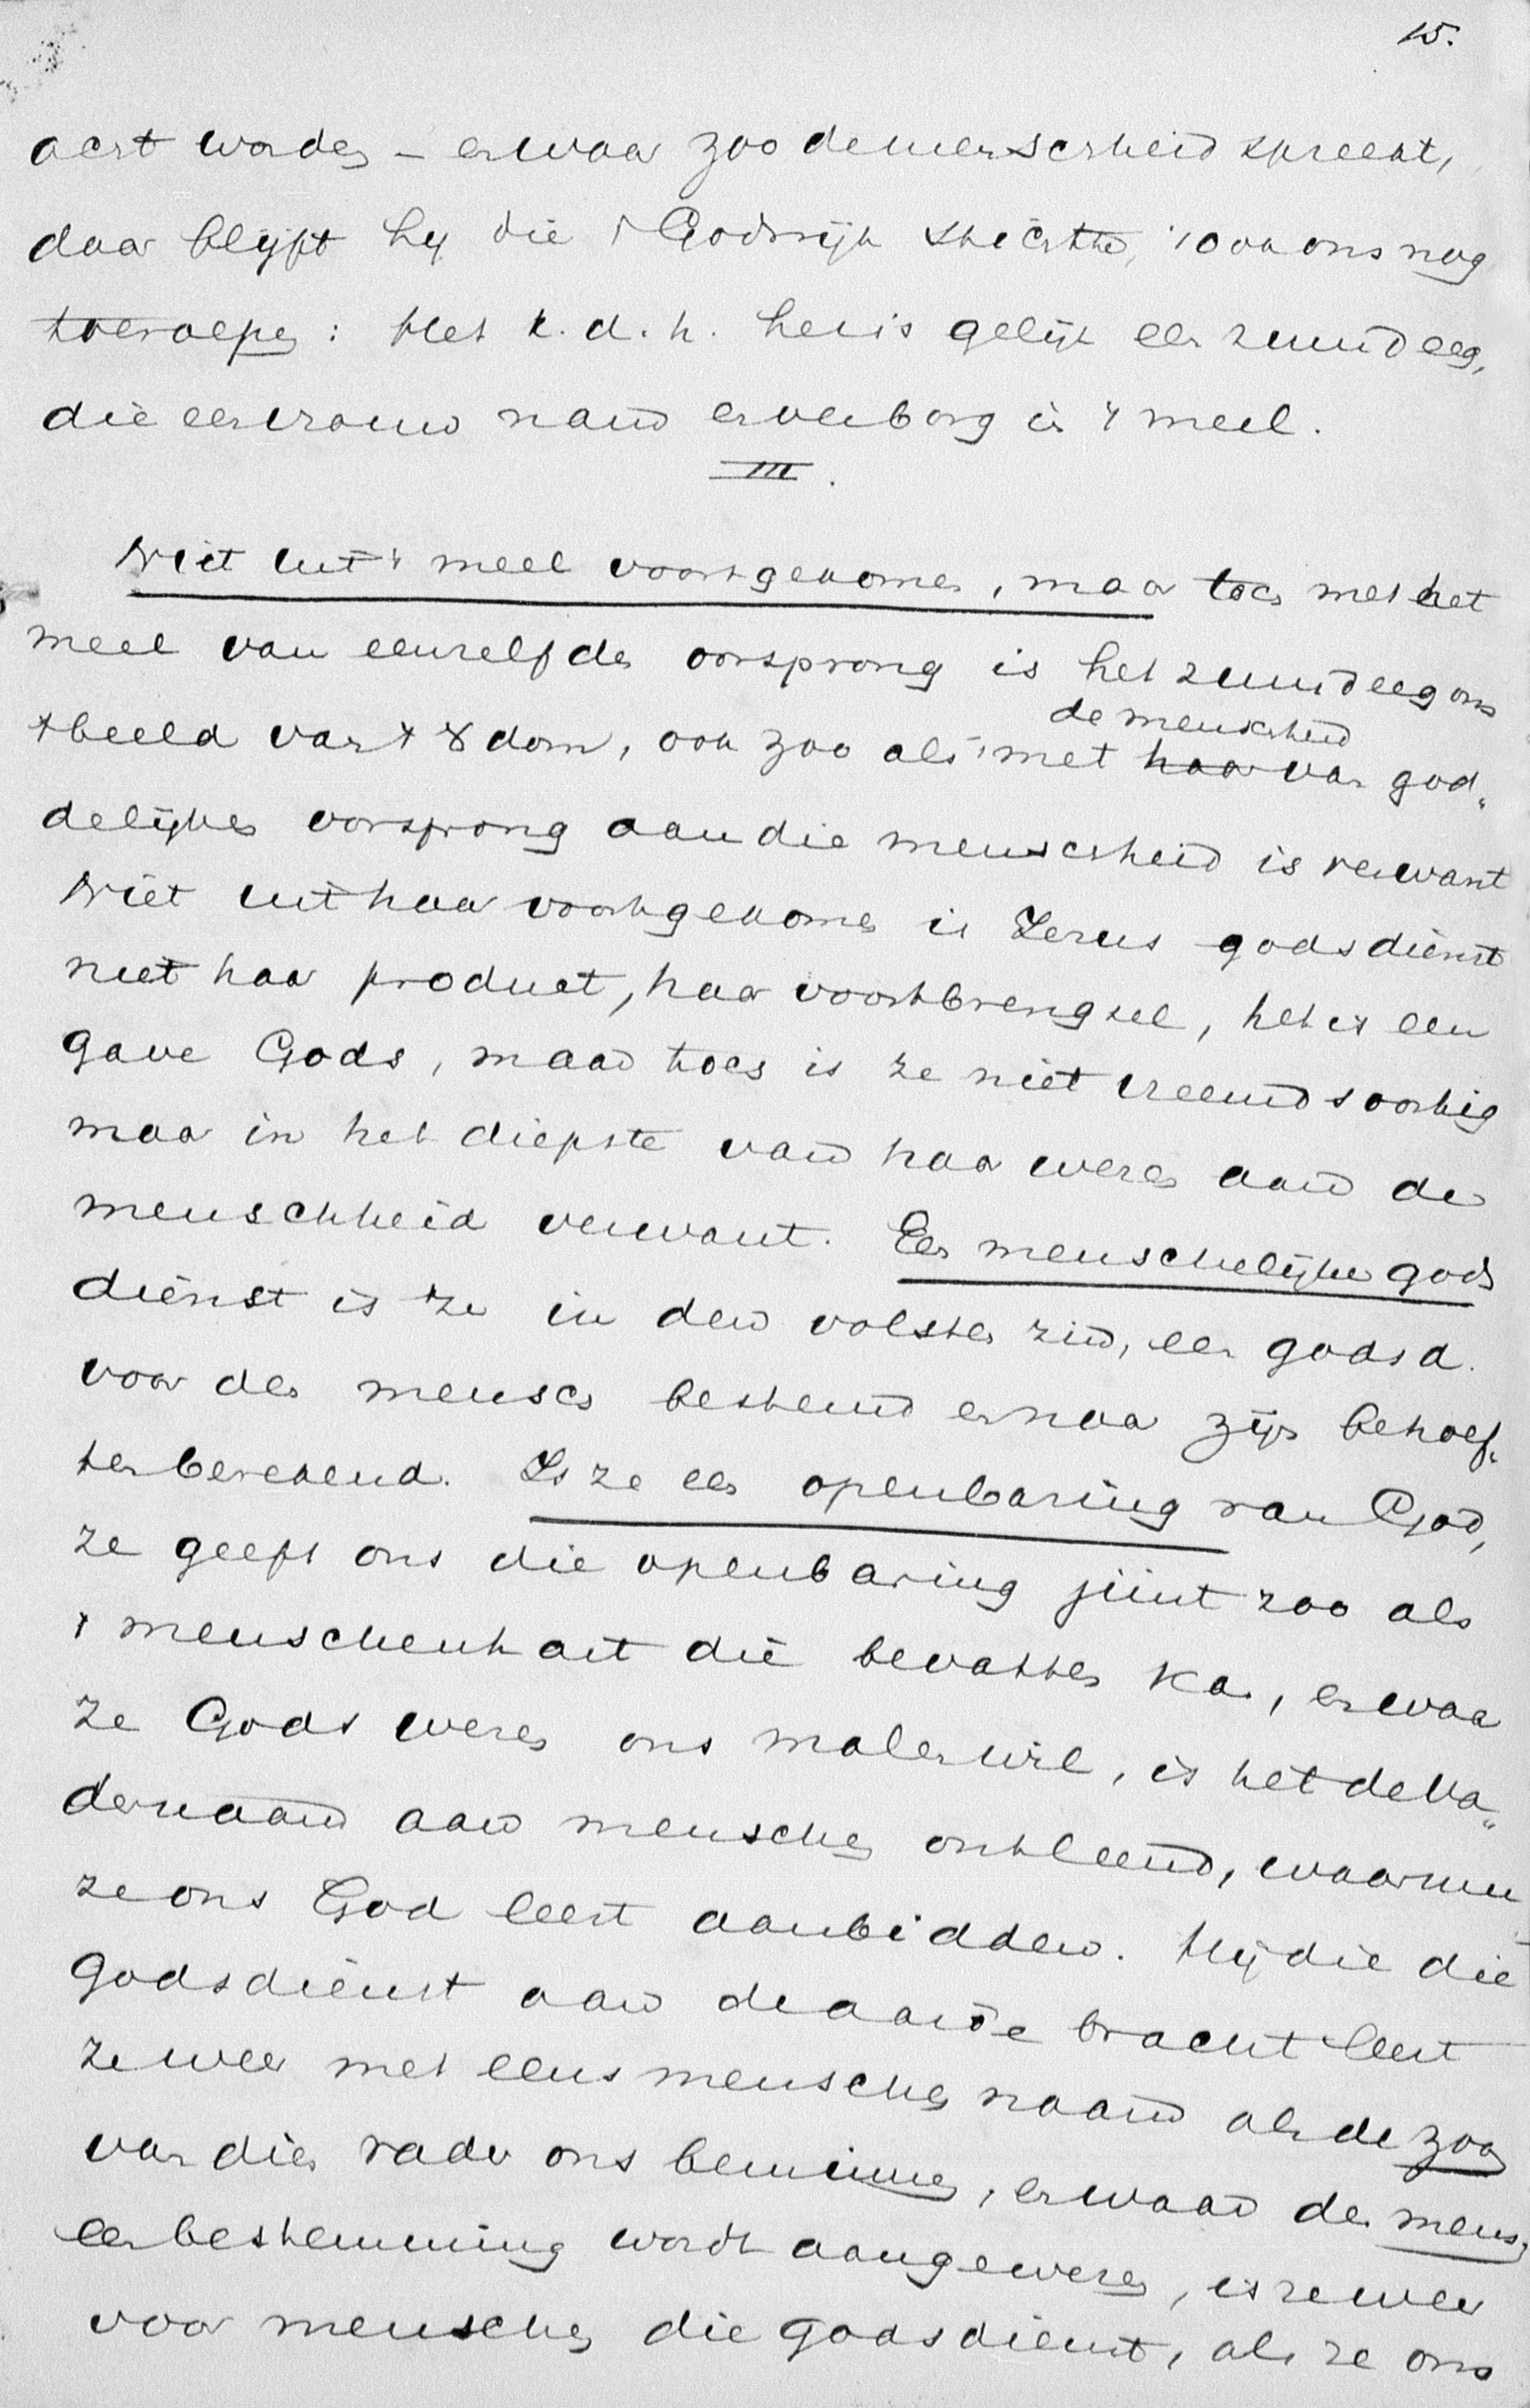 15.
acht worden – en waar zoo de menschheid spreekt,
daar blijft hij die 't Godsrijk stichtte, ook ons nog
toeroepen: Het k. d. h. hem is gelijk een zuurdeeg,
die een vrouw nam en verborg in 't meel.
III.
Niet uit 't meel voortgekomen, maar toch met het
meel van eenzelfden oorsprong is het zuurdeeg ons
't beeld van 't Xdom, ook zoo als 't met
de menschheid
haar van god„
delijken oorsprong aan die menschheid is verwant
Niet uit haar voortgekomen is Jezus godsdienst
niet haar product, haar voortbrengsel, het is een
gave Gods, maar toch is ze niet vreemdsoortig
maar in het diepste van haar wezen aan de
menschheid verwant. Een menschelijke gods
dienst is ze in den volsten zin, een godsd.
voor den mensch bestemd en naar zijn behoef„
ten berekend. Is ze een openbaring van God,
ze geeft ons die openbaring juist zoo als
't menschenhart die bevatten kan, en waar
ze Gods wezen ons malen wil, is het de va„
dernaam aan menschen ontleend, waarmee
ze ons God leert aanbidden. Hij die die
godsdienst aan de aarde bracht leert
ze weer met eens menschen naam als de zoon
van dien vader ons beminnen, en waar den mensch
een bestemming wordt aangewezen, is ze weer
voor menschen die godsdienst, als ze ons